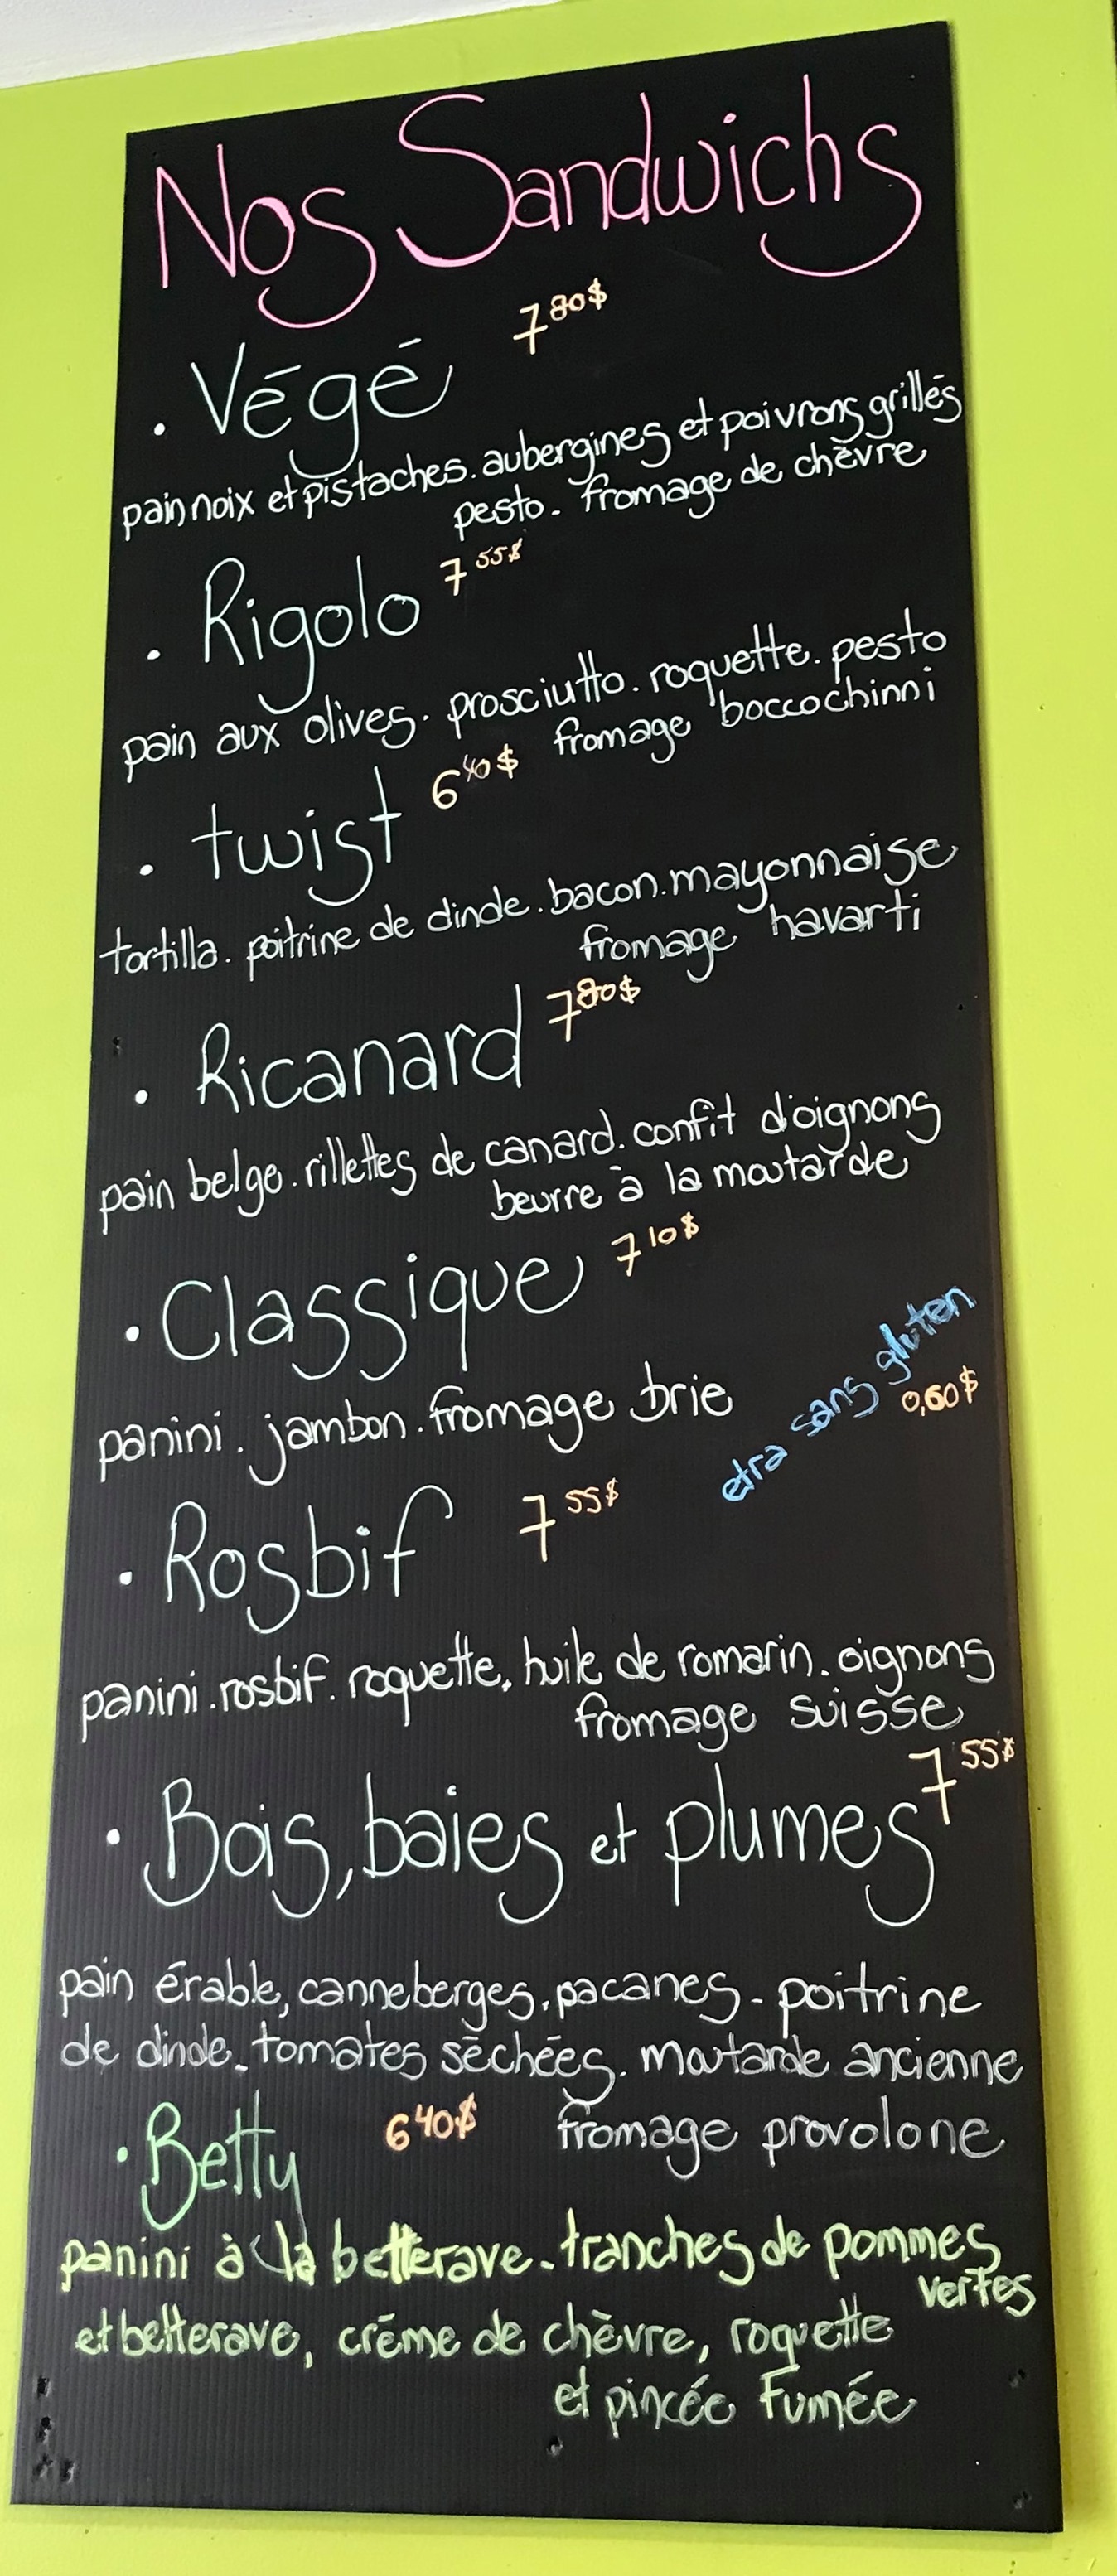 Nos Sandwichs
• Végé 7 80$
pain noix et pistaches. aubergines et poivrons grillés
pesto. fromage de chèvre
• Rigolo 7 55$
pain aux olives. prosciutto. roquette. pesto
fromage boccochinni
• twist 6 40$
tortilla. poitrine de dinde. bacon. mayonnaise
fromage havarti
• Ricanard 7 80$
pain belge. rillettes de canard. confit d'oignons
beurre à la moutarde
• Classique 7 10$
panini. jambon. fromage brie
etra sans gluten
0,60$
• Rosbif 7 55$
panini. rosbif. roquette. huile de romarin. oignons
fromage suisse
• Bois, baies et plumes 7 55$
pain érable, canneberges, pacanes - poitrine
de dinde. tomates séchées. moutarde ancienne
fromage provolone
• Betty 6 40$
panini à la betterave. tranches de pommes
vertes
et betterave, crème de chèvre, roquette
et pincée fumée